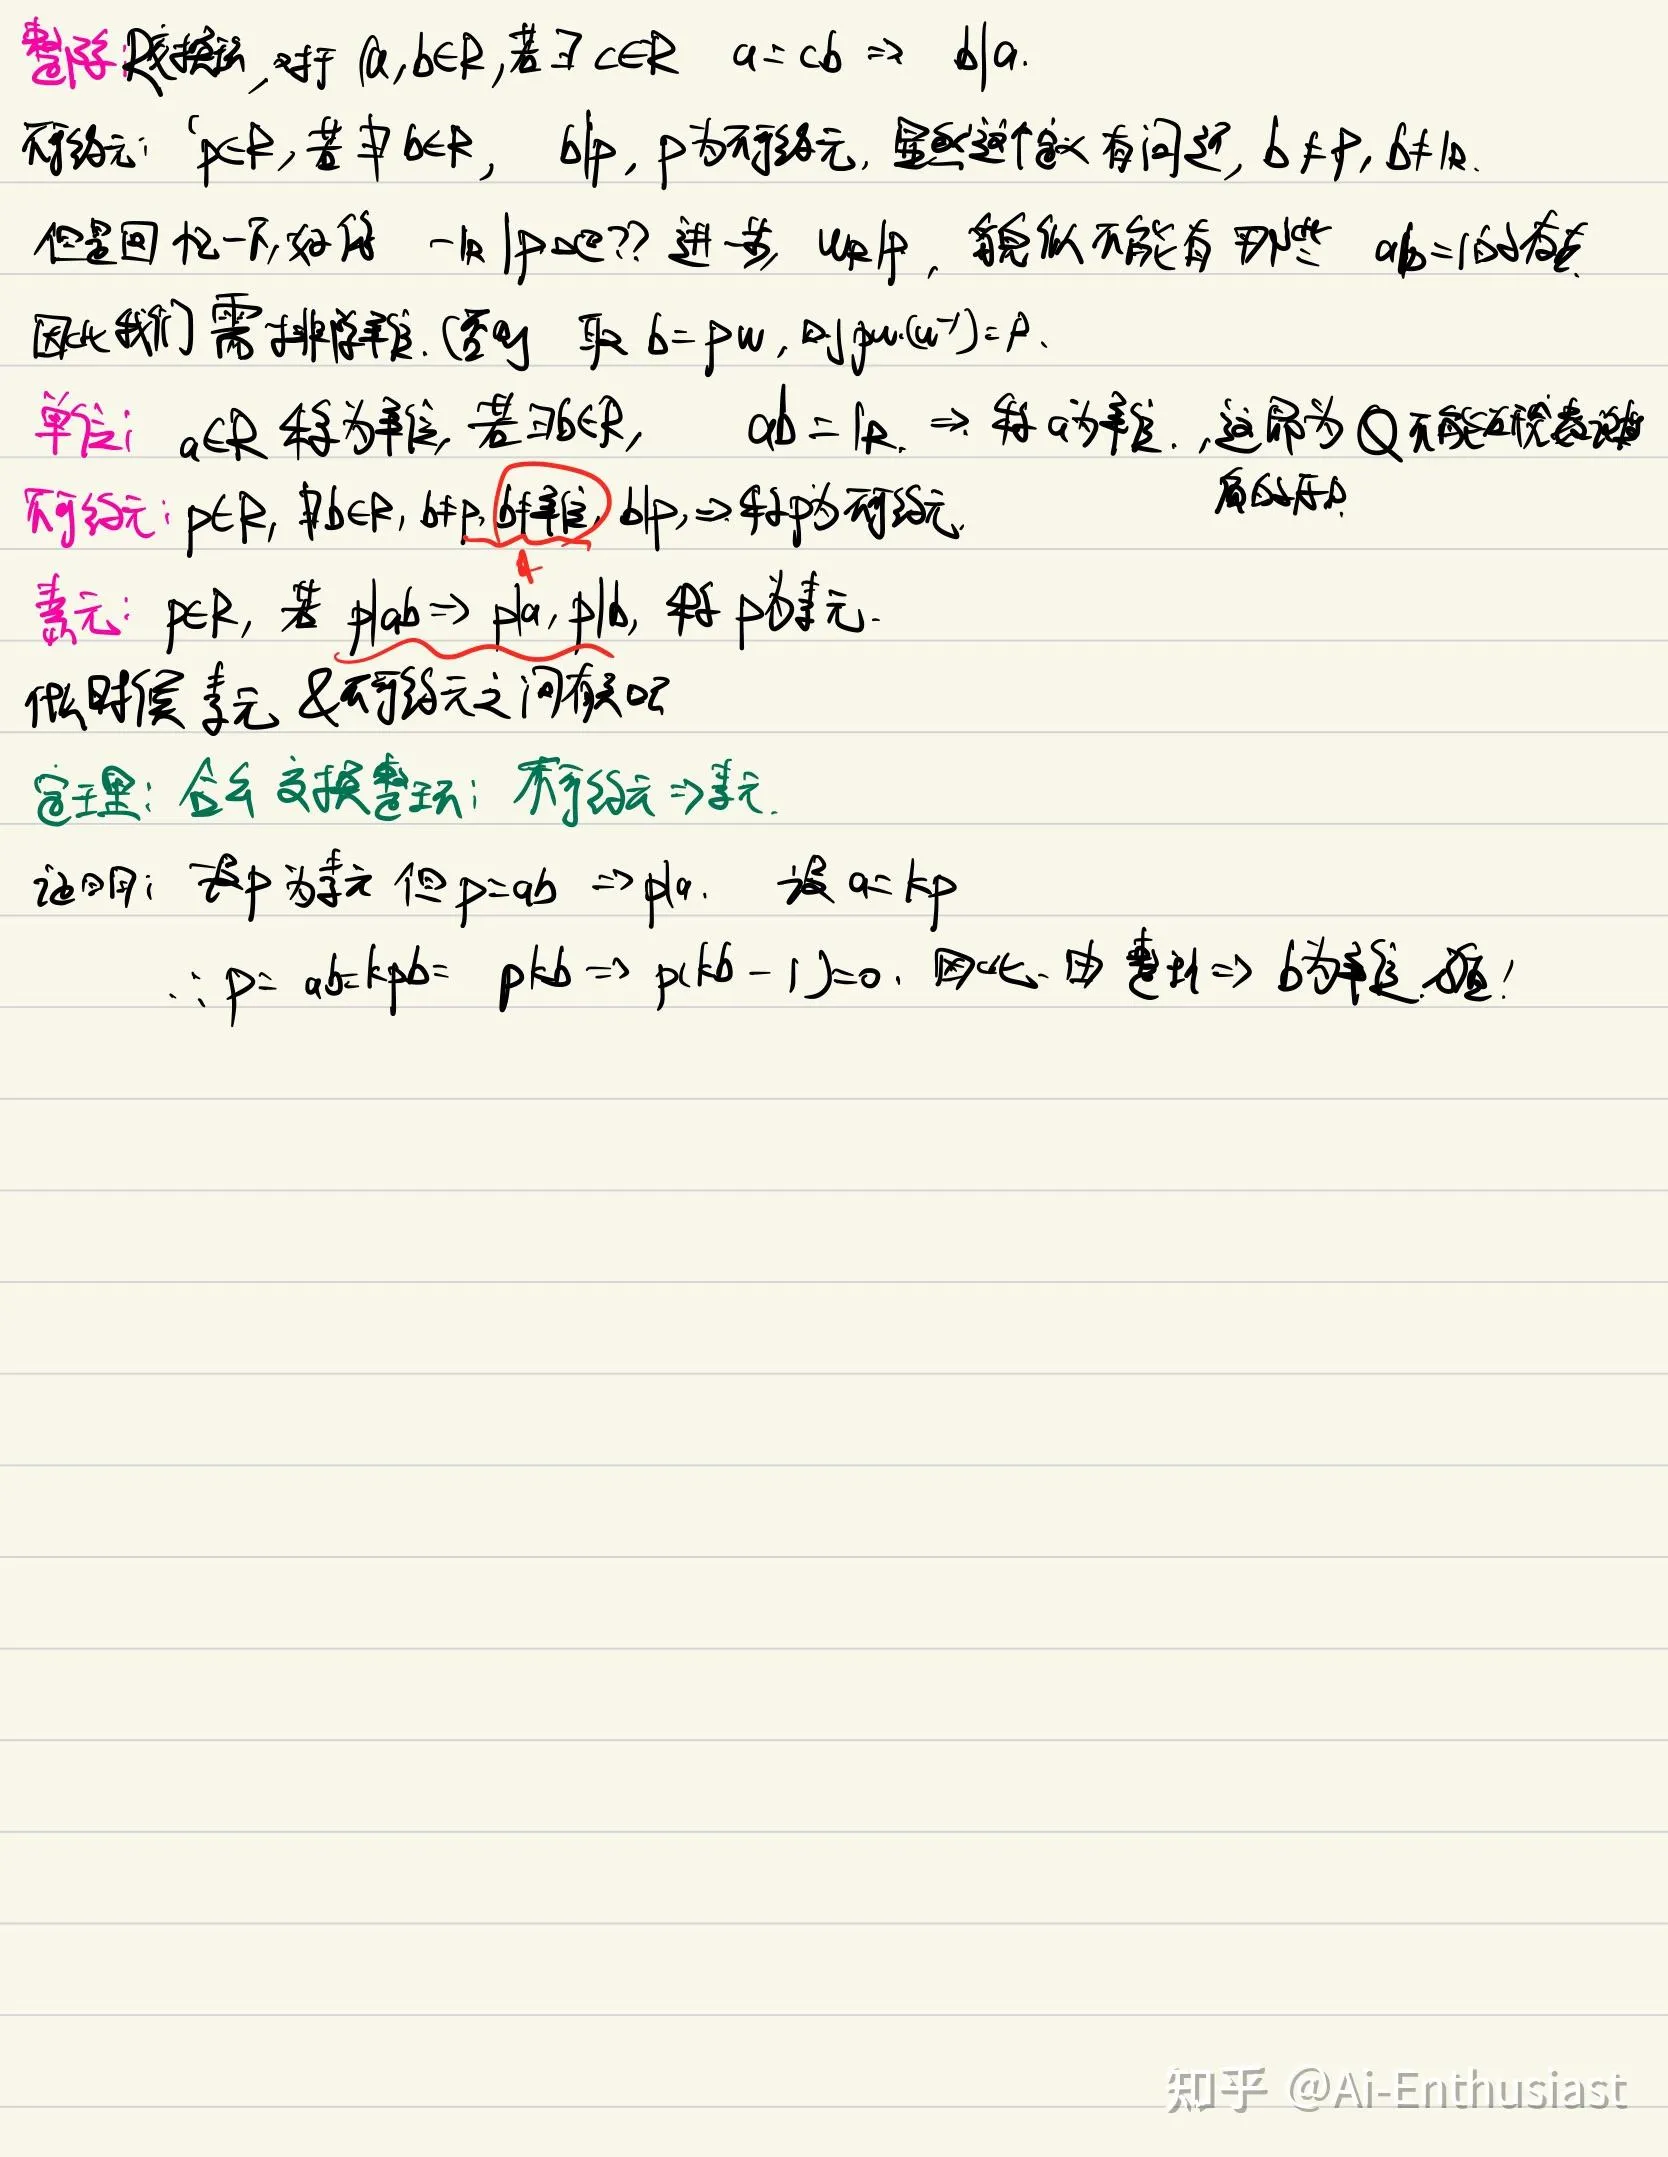 整除: R交换环, 对于 a,b∈R, 若∃c∈R a=cb ⇒ b|a.
不可约元: "p∈R, 若∄b∈R, b|p, p为不可约元, 显然这个定义有问题, b≠p, b≠1R.
但是回忆一下, 好像 -1R|p 吧?? 进一步, uR|p, 貌似不能有那些 ab=1的存在.
因此我们需要排除单位. (否则 取 b=pu, 则 pu·(u⁻¹)=p.
单位: a∈R 称为单位, 若∃b∈R, ab=1R. ⇒ 称a为单位., 这即为Q不能
不可约元: p∈R, ∄b∈R, b≠p, b≠单位, b|p, ⇒ 称p为不可约元.
素元: p∈R, 若 p|ab ⇒ p|a, p|b, 称p为素元.
什么时候素元&不可约元之间有关呢
定理: 含幺交换整环: 不可约元⇒素元.
证明: 设p为素元 但p=ab ⇒ p|a. 设 a=kp
∴ p= ab=kpb= pkb ⇒ p(kb-1)=0. 因此, 由整环⇒ b为单位.
知乎 @Ai-Enthusiast